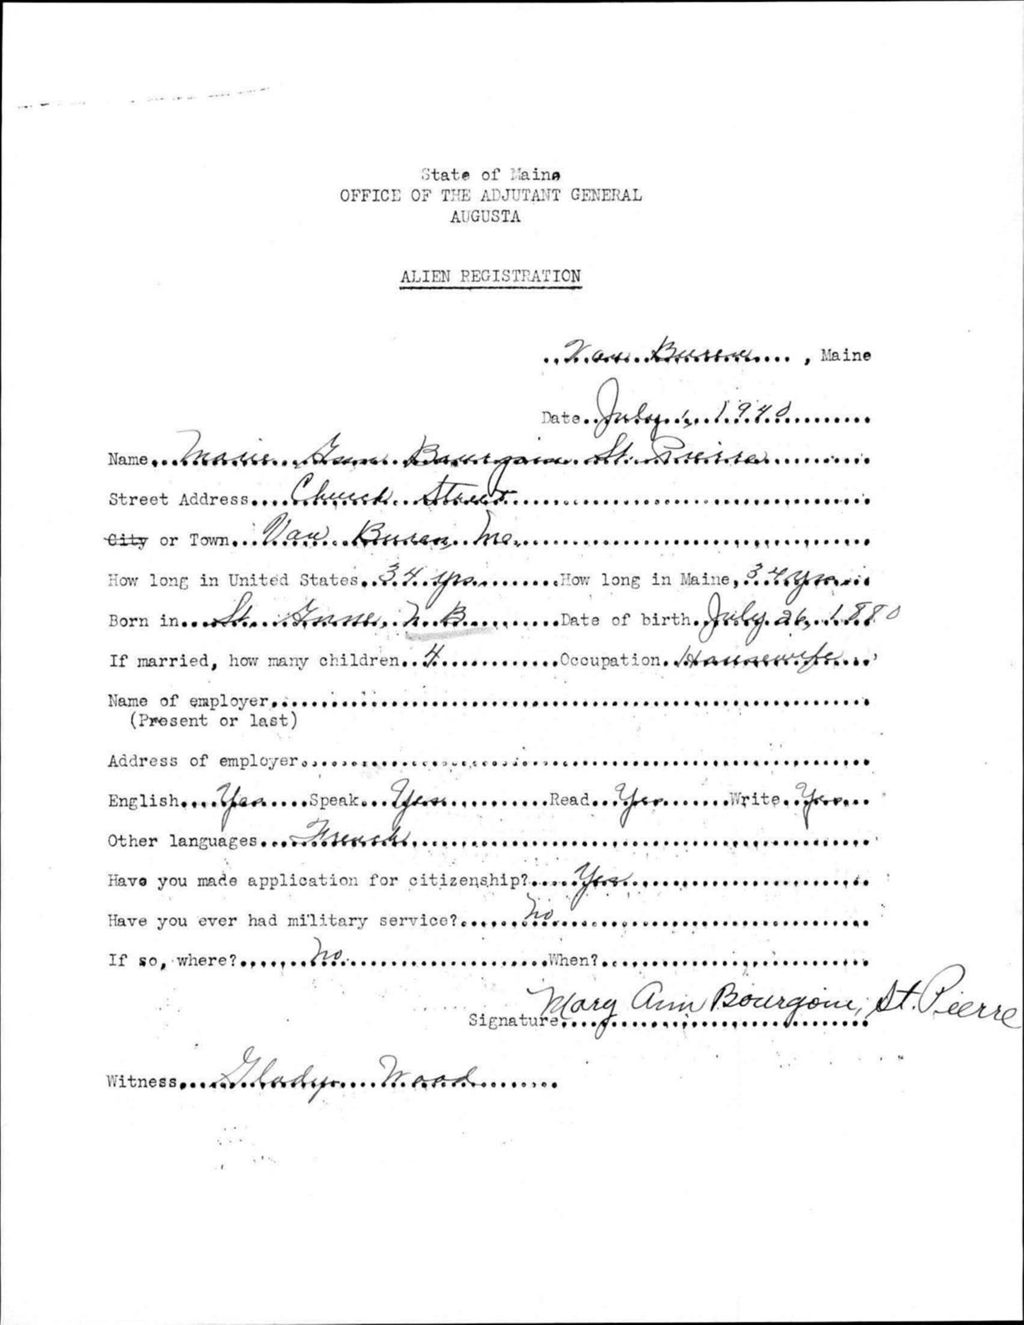 State of Maine
OFFICE OF THE ADJUTANT GENERAL
AUGUSTA
ALIEN REGISTRATION
Van Buren, Maine
Date July 1, 1940
Name Marie Ann Bourgoin St. Pierre
Street Address Church Street
City or Town Van Buren, Me.
How long in United States 34 yrs. How long in Maine, 34 yrs.
Born in St. Anne, N.B. Date of birth July 26, 1880
If married, how many children 4 Occupation Housewife
Name of employer
(Present or last)
Address of employer
English Yes Speak Yes Read Yes Write Yes
Other languages French
Have you made application for citizenship? Yes
Have you ever had military service? No
If so, where? No. When?
Signature Mary Ann Bourgoin, St. Pierre
Witness Gladys Wood